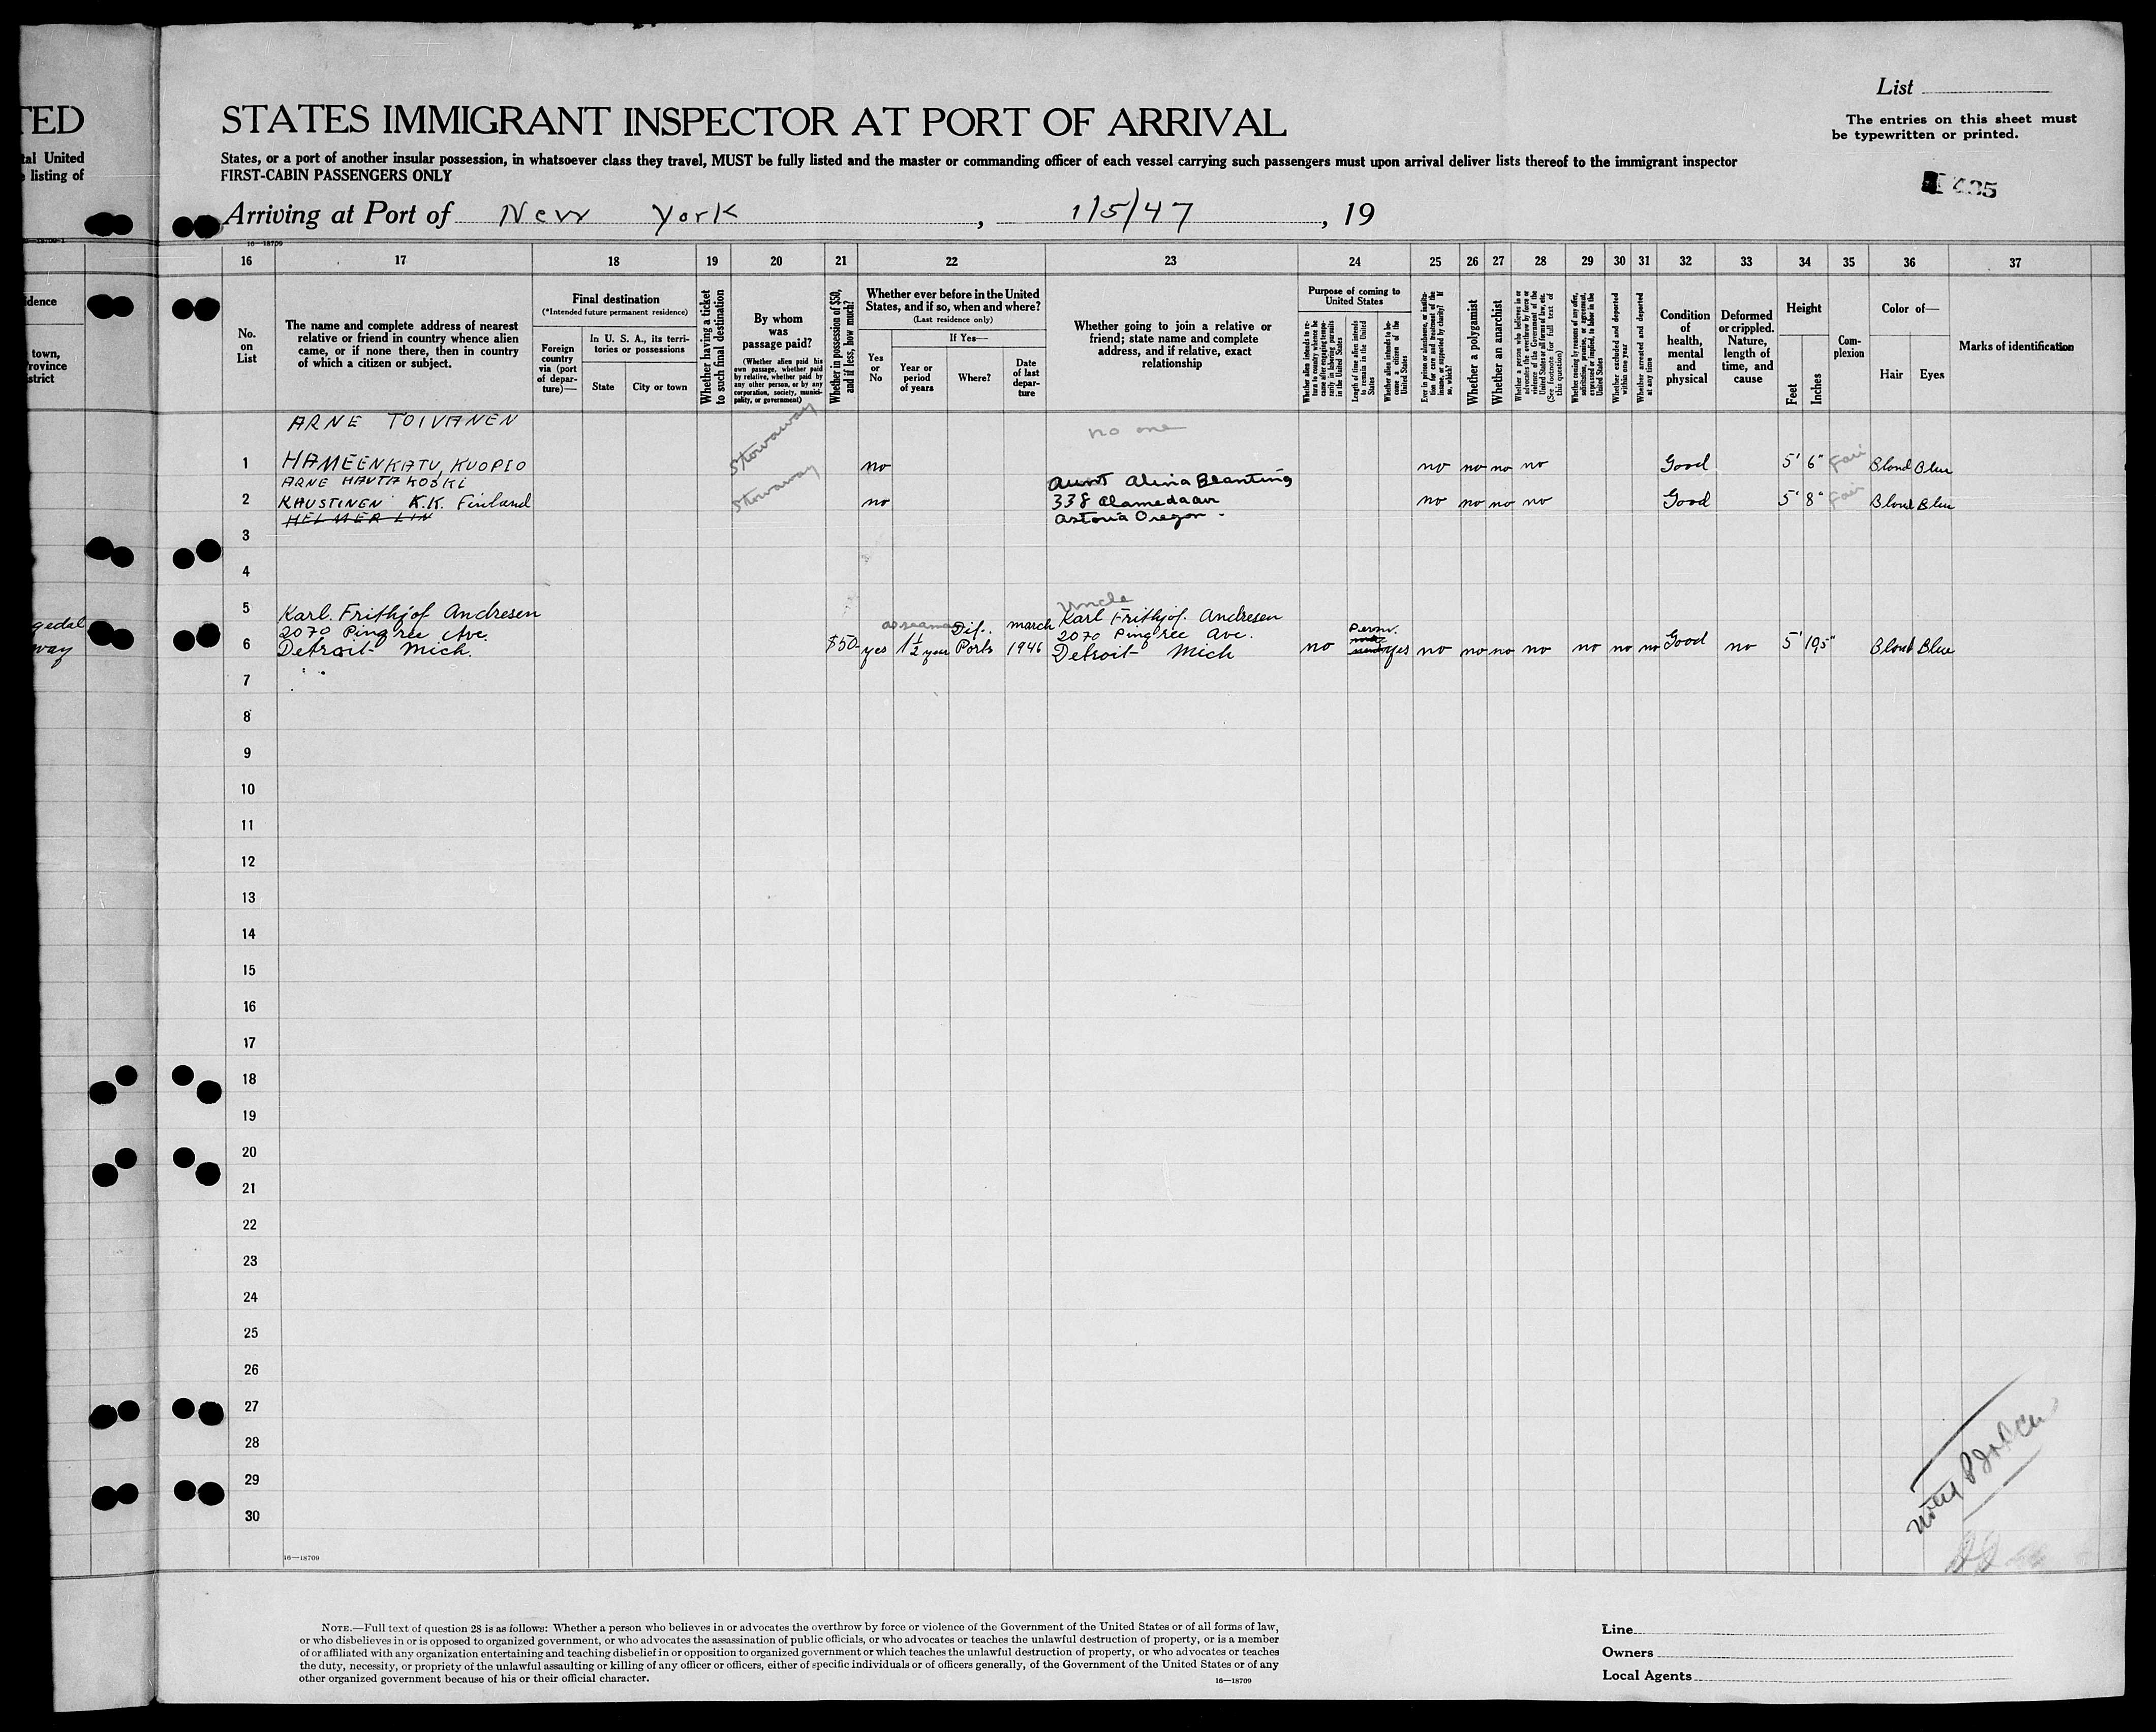 TED
tal United
listing of
List
STATES IMMIGRANT INSPECTOR AT PORT OF ARRIVAL
The entries on this sheet must
be typewritten or printed.
States, or a port of another insular possession, in whatsoever class they travel, MUST be fully listed and the master or commanding officer of each vessel carrying such passengers must upon arrival deliver lists thereof to the immigrant inspector
FIRST-CABIN PASSENGERS ONLY
Arriving at Port of New York, 1/5/47, 19
16—18709
16 17 18 19 20 21 22 23 24 25 26 27 28 29 30 31 32 33 34 35 36 37
No.
on
List
The name and complete address of nearest
relative or friend in country whence alien
came, or if none there, then in country
of which a citizen or subject.
Final destination
(*Intended future permanent residence)
Foreign
country
via (port
of depar-
ture)—
In U. S. A., its terri-
tories or possessions
State
City or town
Whether having a ticket
to such final destination
By whom
was
passage paid?
(Whether alien paid his
own passage, whether paid
by relative, whether paid by
any other person, or by any
corporation, society, munici-
pality, or government)
Whether in possession of $50,
and if less, how much?
Whether ever before in the United
States, and if so, when and where?
(Last residence only)
Yes
or
No
If Yes—
Year or
period
of years
Where?
Date
of last
depar-
ture
Whether going to join a relative or
friend; state name and complete
address, and if relative, exact
relationship
Purpose of coming to
United States
Whether alien intends to re-
turn to country whence he
came after engaging tempo-
rarily in laboring pursuits
in the United States
Length of time alien intends
to remain in the United
States
Whether alien intends to be-
come a citizen of the
United States
Ever in prison or almshouse, or institu-
tion for care and treatment of the
insane, or supported by charity? If
so, which?
Whether a polygamist
Whether an anarchist
Whether a person who believes in or
advocates the overthrow by force or
violence of the Government of the
United States or all forms of law, etc.
(See footnote for full text of
this question)
Whether coming by reasons of any offer,
solicitation, promise, or agreement,
expressed or implied, to labor in the
United States
Whether excluded and deported
within one year
Whether arrested and deported
at any time
Condition
of
health,
mental
and
physical
Deformed
or crippled.
Nature,
length of
time, and
cause
Height
Feet
Inches
Com-
plexion
Color of—
Hair Eyes
Marks of identification
ARNE TOIVANEN
no one
1 HAMEENKATU, KUOPIO Stowaway no no no no no Good 5' 6" Fair Blond Blue
ARNE HAUTAKOSKI
Aunt Alina Branting
2 KAUSTINEN K.K. Finland Stowaway no 338 Alameda av no no no no Good 5' 8" Fair Blond Blue
HELMER LIN
Astoria Oregon -
3
4
5
Uncle
Karl Frithjof Andresen as seaman Dif. march Karl Frithjof. Andresen
2070 Pingree Ave. 2070 Pingree Ave. Perm.
6 Detroit Mich. $50- yes 1½ year Ports 1946 Detroit Mich no yes no no no no no no no Good no 5' 10,5" Blond Blue
gedal
way
7
8
9
10
11
12
13
14
15
16
17
18
19
20
21
22
23
24
25
26
27
28
29
30
16—18709
NOTE.—Full text of question 28 is as follows: Whether a person who believes in or advocates the overthrow by force or violence of the Government of the United States or of all forms of law,
or who disbelieves in or is opposed to organized government, or who advocates the assassination of public officials, or who advocates or teaches the unlawful destruction of property, or is a member
of or affiliated with any organization entertaining and teaching disbelief in or opposition to organized government or which teaches the unlawful destruction of property, or who advocates or teaches
the duty, necessity, or propriety of the unlawful assaulting or killing of any officer or officers, either of specific individuals or of officers generally, of the Government of the United States or of any
other organized government because of his or their official character.
16—18709
Line
Owners
Local Agents